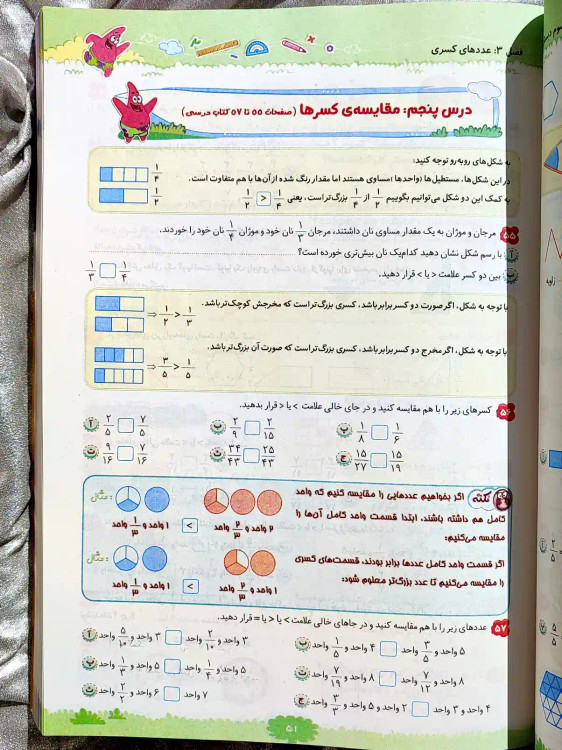 فصل ۳: عددهای کسری
درس پنجم: مقایسه‌ی کسرها (صفحات ۵۵ تا ۵۷ کتاب درسی)
به شکل‌های روبه‌رو توجه کنید:
در این شکل‌ها، مستطیل‌ها (واحدها) مساوی هستند اما مقدار رنگ شده از آن‌ها با هم متفاوت است.
به کمک این دو شکل می‌توانیم بگوییم ۱/۲ از ۱/۴ بزرگ‌تر است، یعنی ۱/۴ < ۱/۲
۱/۴
۱/۲
۵۵ مرجان و موژان به یک مقدار مساوی نان داشتند، مرجان ۱/۳ نان خود و موژان ۱/۴ نان خود را خوردند.
آ با رسم شکل نشان دهید کدام‌یک نان بیش‌تری خورده است؟
ب بین دو کسر علامت < یا > قرار دهید.
۱/۳ □ ۱/۴
با توجه به شکل، اگر صورت دو کسر برابر باشد، کسری بزرگ‌تر است که مخرجش کوچک‌تر باشد.
⇒ ۱/۲ > ۱/۳
با توجه به شکل، اگر مخرج دو کسر برابر باشد، کسری بزرگ‌تر است که صورت آن بزرگ‌تر باشد.
⇒ ۳/۵ > ۱/۵
۵۶ کسرهای زیر را با هم مقایسه کنید و در جای خالی علامت > یا < قرار بدهید.
آ ۲/۵ □ ۷/۵
ب ۲/۹ □ ۲/۱۵
پ ۱/۸ □ ۱/۶
ت ۹/۱۶ □ ۷/۱۶
ث ۳۴/۴۳ □ ۲۵/۴۳
ج ۱۵/۲۷ □ ۱۵/۱۹
نکته
اگر بخواهیم عددهایی را مقایسه کنیم که واحد
کامل هم داشته باشند، ابتدا قسمت واحد کامل آن‌ها را
مقایسه می‌کنیم:
مثال:
۱ واحد و ۱/۳ واحد < ۲ واحد و ۲/۳ واحد
اگر قسمت واحد کامل عددها برابر بودند، قسمت‌های کسری
را مقایسه می‌کنیم تا عدد بزرگ‌تر معلوم شود:
مثال:
۱ واحد و ۱/۳ واحد < ۱ واحد و ۲/۳ واحد
۵۷ عددهای زیر را با هم مقایسه کنید و در جاهای خالی علامت > یا < یا = قرار دهید.
آ ۳ واحد و ۵/۱۰ واحد □ ۳ واحد و ۲/۱۰ واحد
ب ۴ واحد و ۱/۵ واحد □ ۵ واحد و ۳/۵ واحد
پ ۵ واحد و ۱/۳ واحد □ ۵ واحد و ۱/۴ واحد
ت ۸ واحد و ۷/۹ واحد □ ۸ واحد و ۷/۱۲ واحد
ث ۶ واحد و ۲/۲ واحد □ ۷ واحد
ج ۲ واحد و ۵ واحد و ۳/۳ واحد □ ۴ واحد و ۳ واحد
۵۱